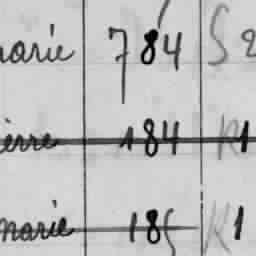 marie 784 S 2
ierre 184 R 1
marie 185 K 1